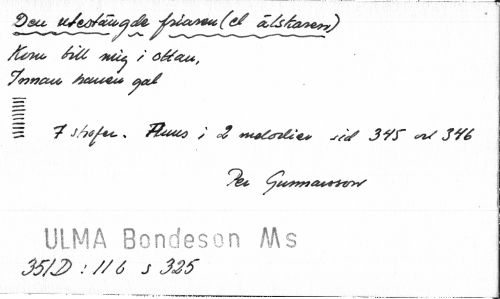 Den utestängde friaren (el älskaren)
Kom till mig i ottan,
Innan hanen gal
7 strofer. Finns i 2 melodier sid 345 och 346
Per Gunnarsson
ULMA Bondeson Ms
351D : 116 s 325